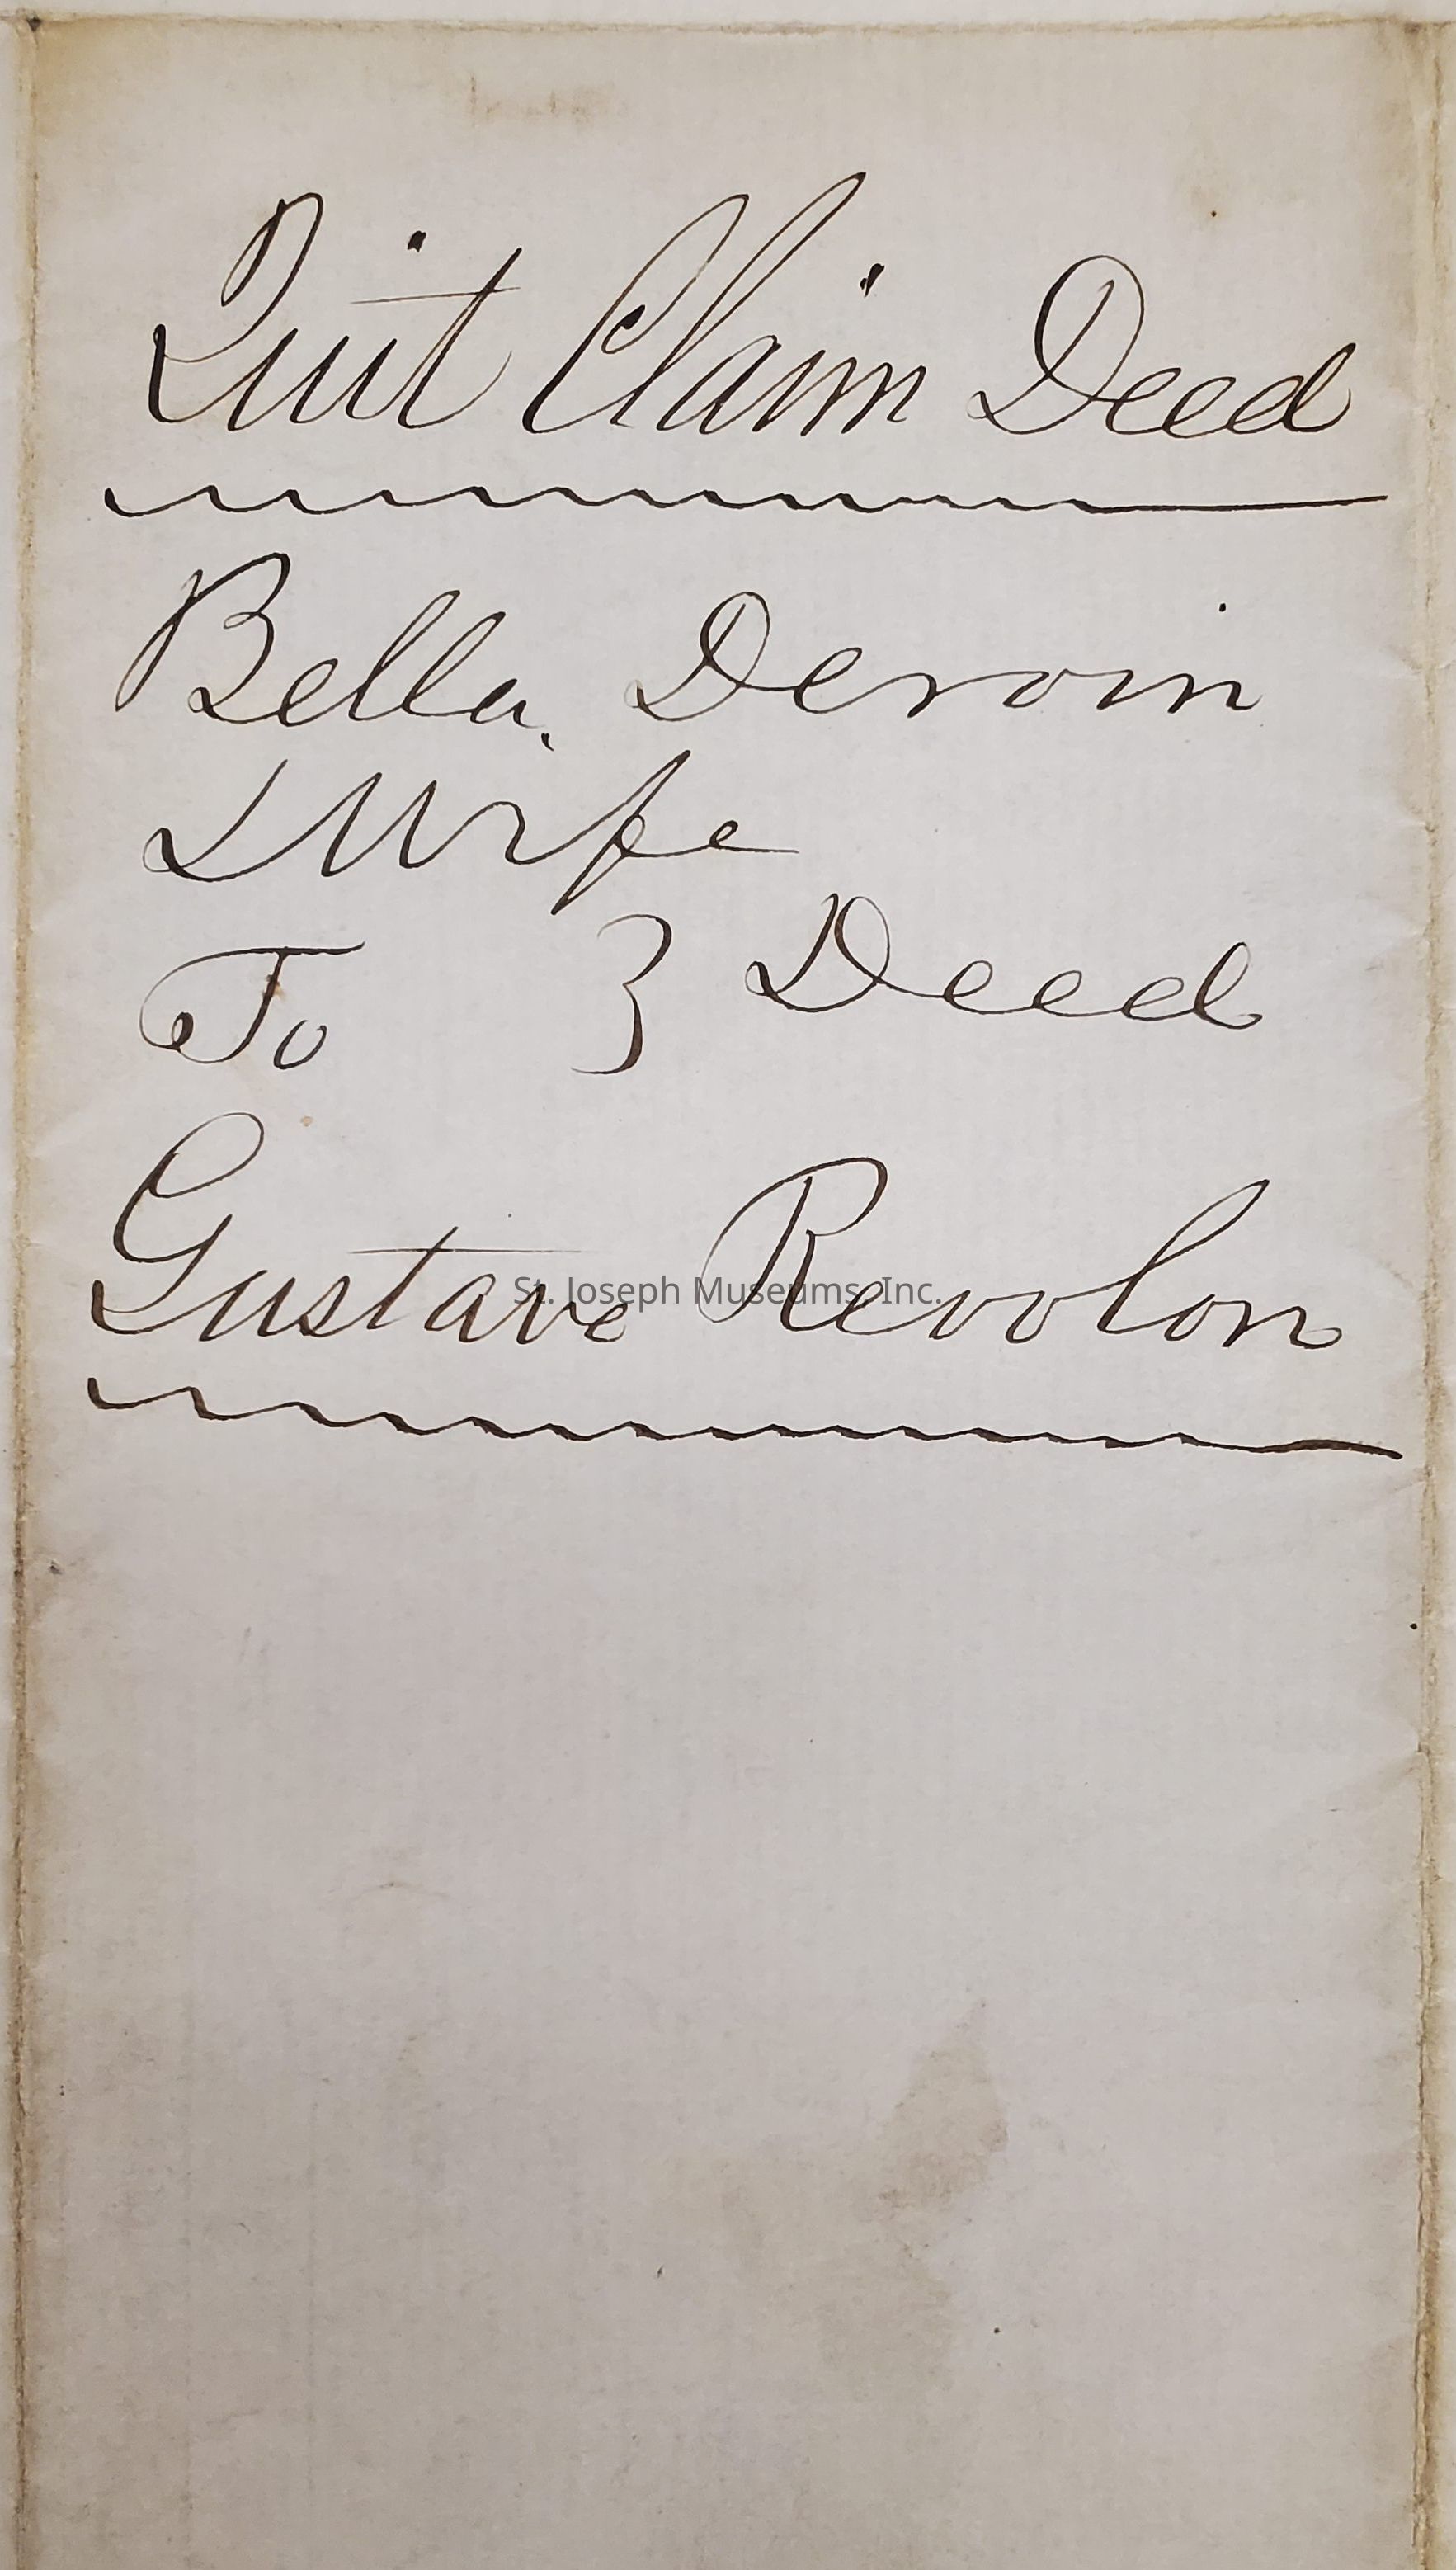 Quit Claim Deed
Bella Deroin
& Wife
To } Deed
Gustave Revolon
St. Joseph Museums, Inc.